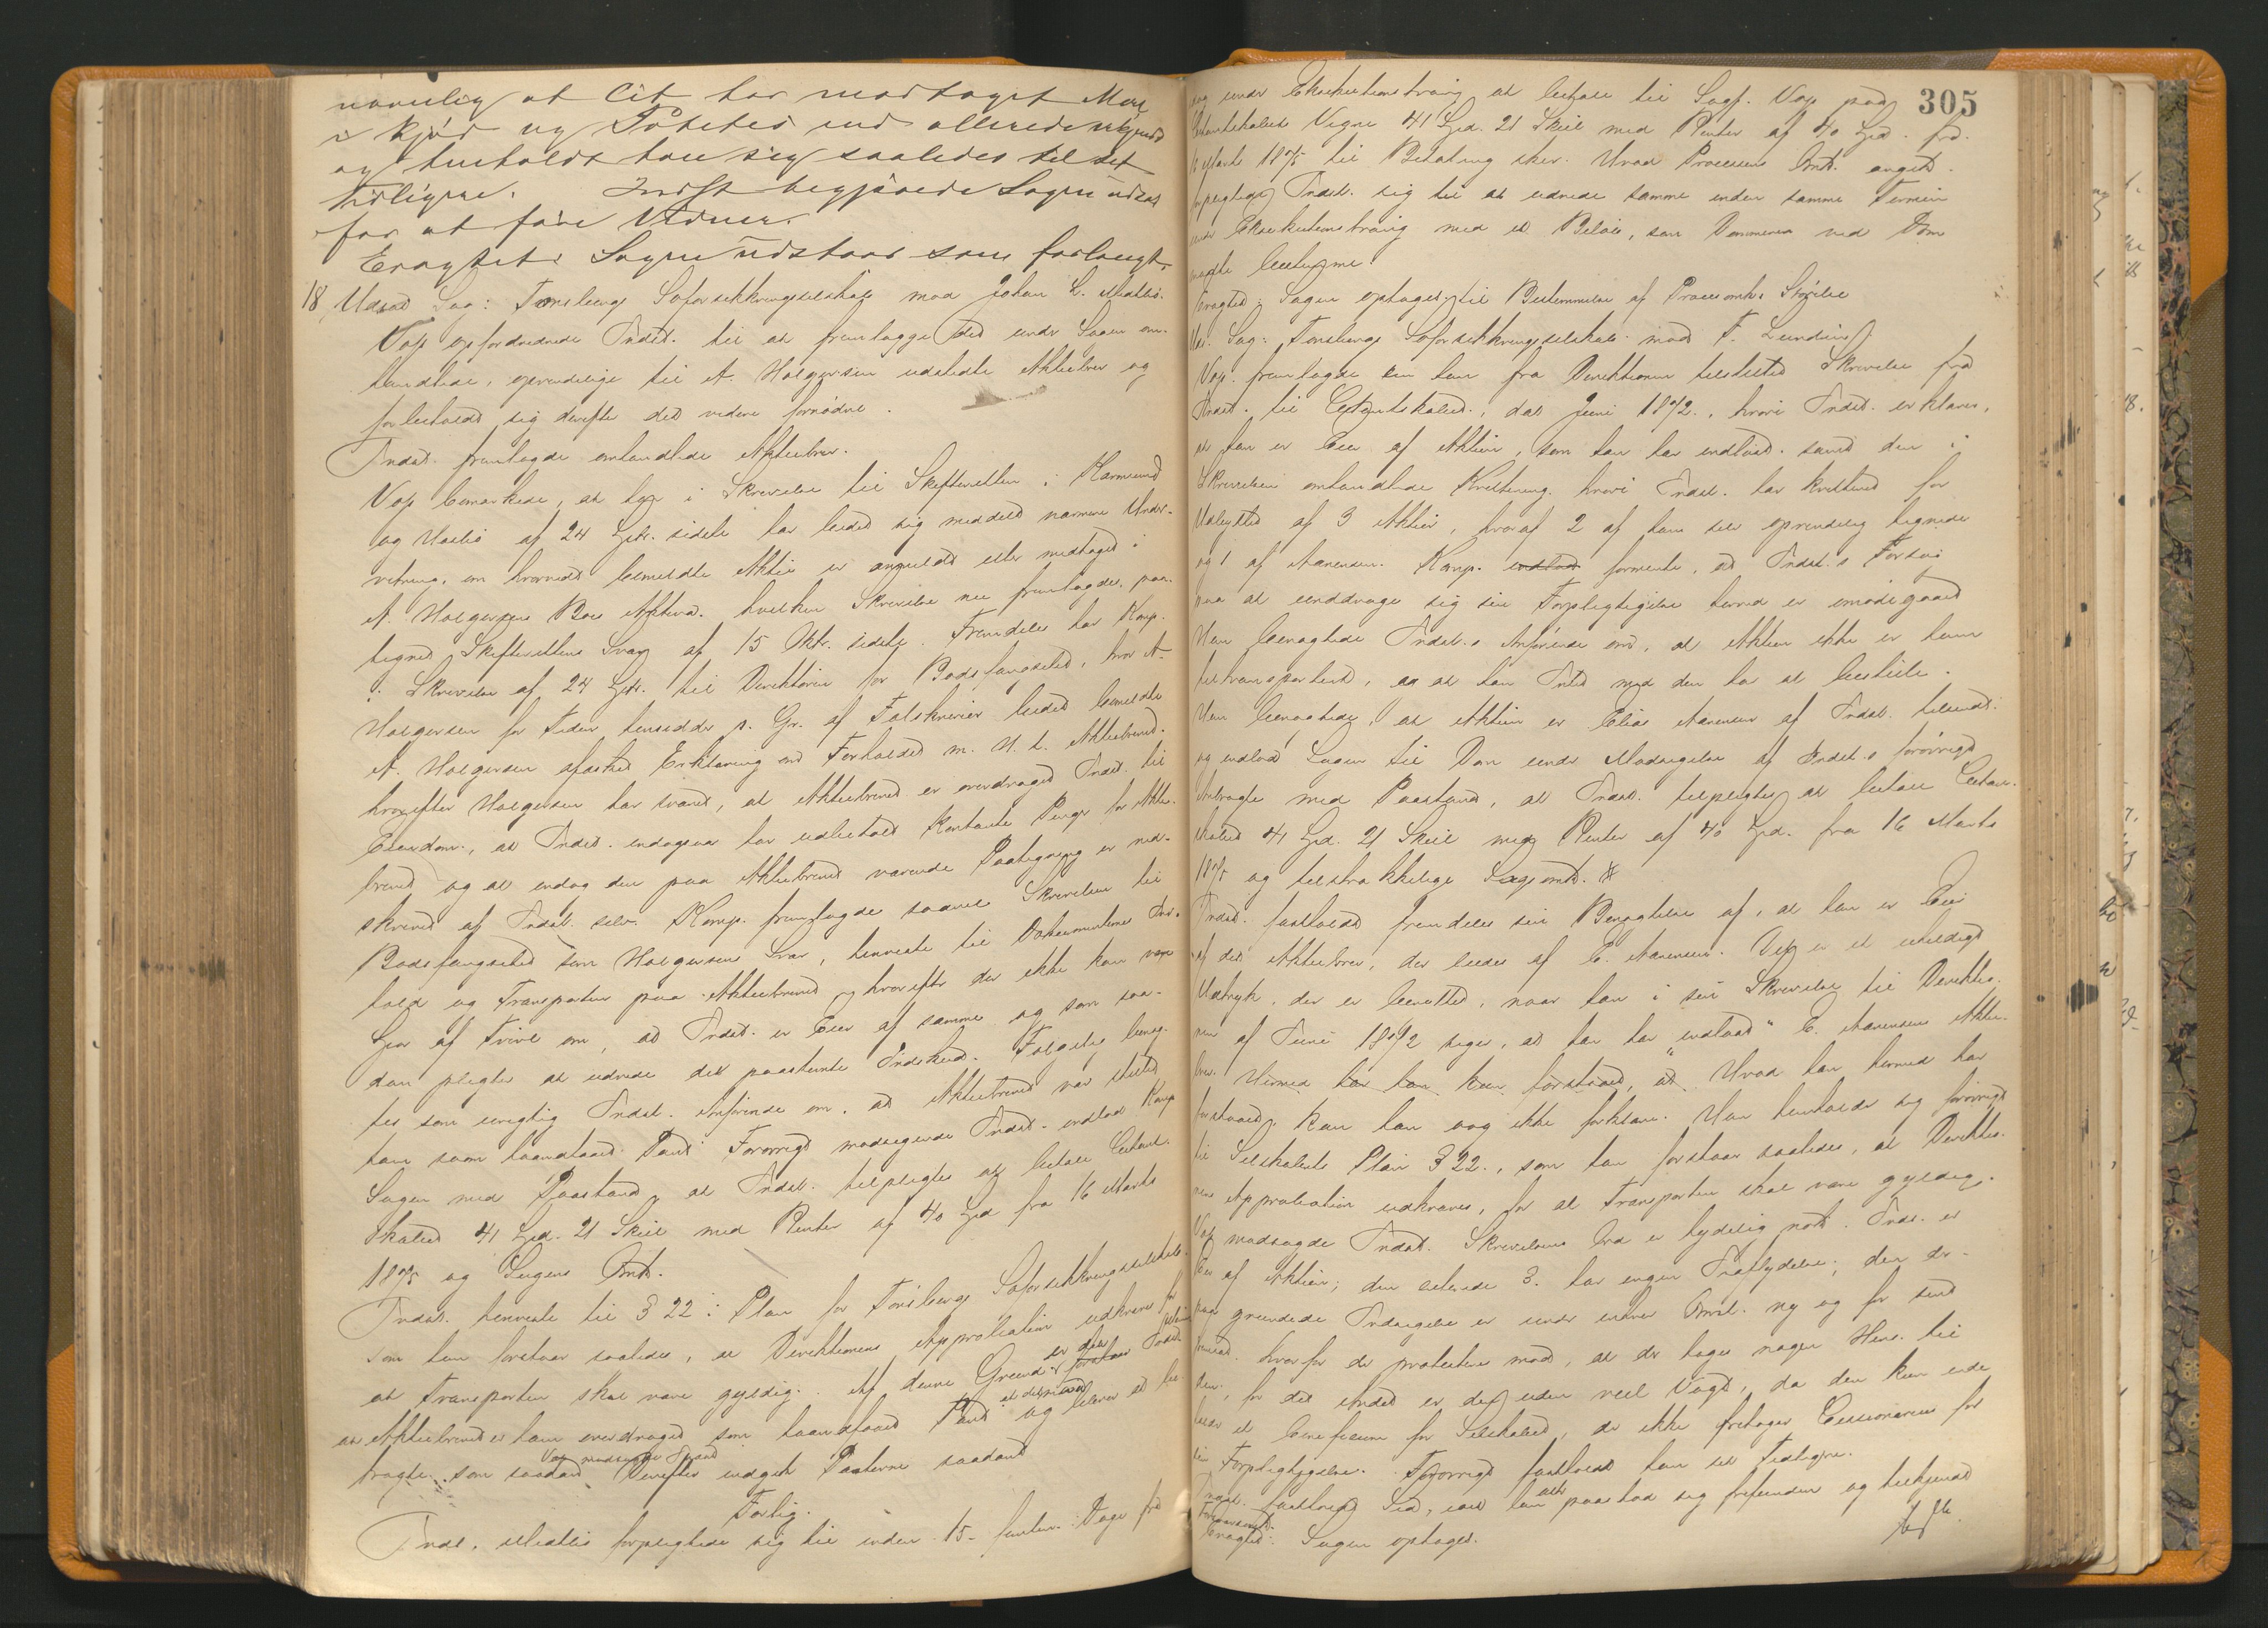 navnlig at Cit. har modtaget Mere
i Kjød og Poteter end allerede erkjendt
og henholdt han sig saaledes til det
tidligere. Indst. begjærede Sagen udsat
for at føre Vidner.
Eragtet: Sagen udstaar som forlangt.
18, Udsat Sag: Tønsbergs Søforsikkringsselskab mod Johan L. Mathis.
Vop opfordrede Indst. til at fremlægge det under Sagen om-
handlede, oprindelige til A. Holgersen udstedte Aktiebrev og
forbeholdt sig derefter det videre fornødne.
Indst. fremlagde omhandlede Aktiebrev.
Vop bemærkede, at han i Skrivelse til Skifteretten i
og af 24 Sept. sidste har bedet sig meddelt nærmere Under-
retning, om hvorvidt bemeldte Aktie er anmeldt eller medtaget i
A. Holgersens Bos Aktiva. hvilken Skrivelse nu fremlagdes paa-
tegnet Skifterettens Svar af 15 Oktr. sidste. Fremdeles har Komp.
i Skrivelse af 24 Sept. til Direktøren for Bodsfængslet, hvor A.
Holgersen for Tiden hensidder p. Gr. af Falskneri bedet bemeldte
A. Holgersen afæsket Erklæring om Forholdet m. H. t. Aktiebrevet.
hvorefter Holgersen har svaret, at Aktiebrevet er overdraget Indst. til
Eiendom, at Indst. endogsaa har udbetalt kontante Penge for Aktie-
brevet og at endog den paa Aktiebrevet værende Paategning er ned-
skrevet af Indst. selv. Komp. fremlagde saavel Skrivelsen til
Bodsfængslet som Holgersens Svar, henviste til Dokumenternes Ind-
hold og Transporten paa Aktiebrevet, hvorefter der ikke kan være
Spor af Tvivl om, at Indst. er Eier af samme og som saa-
dan pligter at udrede det paastevnte Indskud. Følgelig beneg-
tes som urigtig Indst. Anførende om, at Aktiebrevet var stillet
ham som haandfaaet Pant. Forøvrigt modsigende Indst. indlod Komp
Sagen med Paastand, at Indst. tilpligtes at betale Citant-
skabet 41 Spd. 21 Skill med Renter af 40 Spd fra 16 Marts
1875 og Sagens Omk.
Indst. henviste til § 22 i Plan for Tønsbergs Søforsikkringsselskab
som han forstaar saaledes, at Direktionens Approbation udkræves for
at Transporten skal være gyldig. Af denne Grund er det
at Aktiebrevet er ham overdraget som haandfaaet Pant og bliver at be
tragte som saadant Vop modsagde Indst. Derefter indgik Parterne saadant
Forlig.
Indst. Mathis forpligtede sig til inden 15 - femten - Dage fra
305
dag under Eksekutionstvang at betale til Sagf. Vop paa
Citantskabets Vegne 41 Spd. 21 Skill med Renter af 40 Spd. fra
16 Marts 1875 til Betaling sker. Hvad Processens Omk. angaar
forpligtede Indst. sig til at udrede samme inden samme Termin
under Eksekutionstvang med et Beløb, som Dommeren ved Dom
maatte bestemme.
Eragtet: Sagen optages til Bestemmelse af Procesomk.s Størrelse
Uds. Sag: Tønsbergs Søforsikkringsselskab mod F. Lundin.
Vop. fremlagde en ham fra Direktionen tilstillet Skrivelse fra
Indst. til Citantskabet, dat. Juni 1872., hvori Indst. erklærer,
at han er Eier af Aktien, som han har indløst. samt den i
Skrivelsen omhandlede Kvittering. hvori Indst. har kvitteret for
Udbyttet af 3 Aktier, hvoraf 2 af ham selv oprindelig tegnede
og 1 af Aanensen. Komp. formente, at Indst.s Forsøg
paa at unddrage sig sin Forpligtigelse herved er imødegaaet
Han benægtede Indst.s Anførende om, at Aktien ikke er ham
transporteret, at han Intet med den har at bestille.
Han benægtede, at Aktien er Elias Aanensen af Indst. tilsendt:
og indlod Sagen til Dom under Modsigelse af Indst.s forøvrigt
Anbragte med Paastand, at Indst. tilpligtes at betale Citant-
skabet 41 Spd. 21 Skill med Renter af 40 Spd. fra 16 Marts
1875 og tilstrækkelige Sagsomk.
Indst. fastholdt fremdeles sin Benegtelse af, at han er Eier
af det Aktiebrev, der lyder af E. Aanensen. Det er et uheldigt
Udtryk, der er benyttet, naar han i sin Skrivelse til Direktio-
nen af Juni 1872 siger, at han har "indløst" E. Aanensens Aktie-
brev. Hvad han hermed har
forstaaet, kan han nok ikke forklare. Han henholdt sig forøvrigt
til Selskabets Plan § 22., som han forstaar saaledes, at Direktio-
nens Approbation udkræves, for at Transporten skal være gyldig.
Vop modsagde Indst. Skrivelsens Ord er tydelig nok. Indst. er
Eier af Aktien; den siterede §. har ingen Indflydelse; den der-
paa grundede Indsigelse er under enhver Omst. ny og for sent
fremsat. hvorfor der protesteres mod, at der tages nogen Hens. til
den, for det Andet er det uden reel Vægt, da den kun inde
holder et beneficium for Selskabet, der ikke fritager Cessionaren for
sin Forpligtigelse. Forøvrigt fastholdt han sit Tidligere.
Indst. fastholdt Sit, idet han paastod sig frifunden og tilkjendt
Eragtet: Sagen optages.